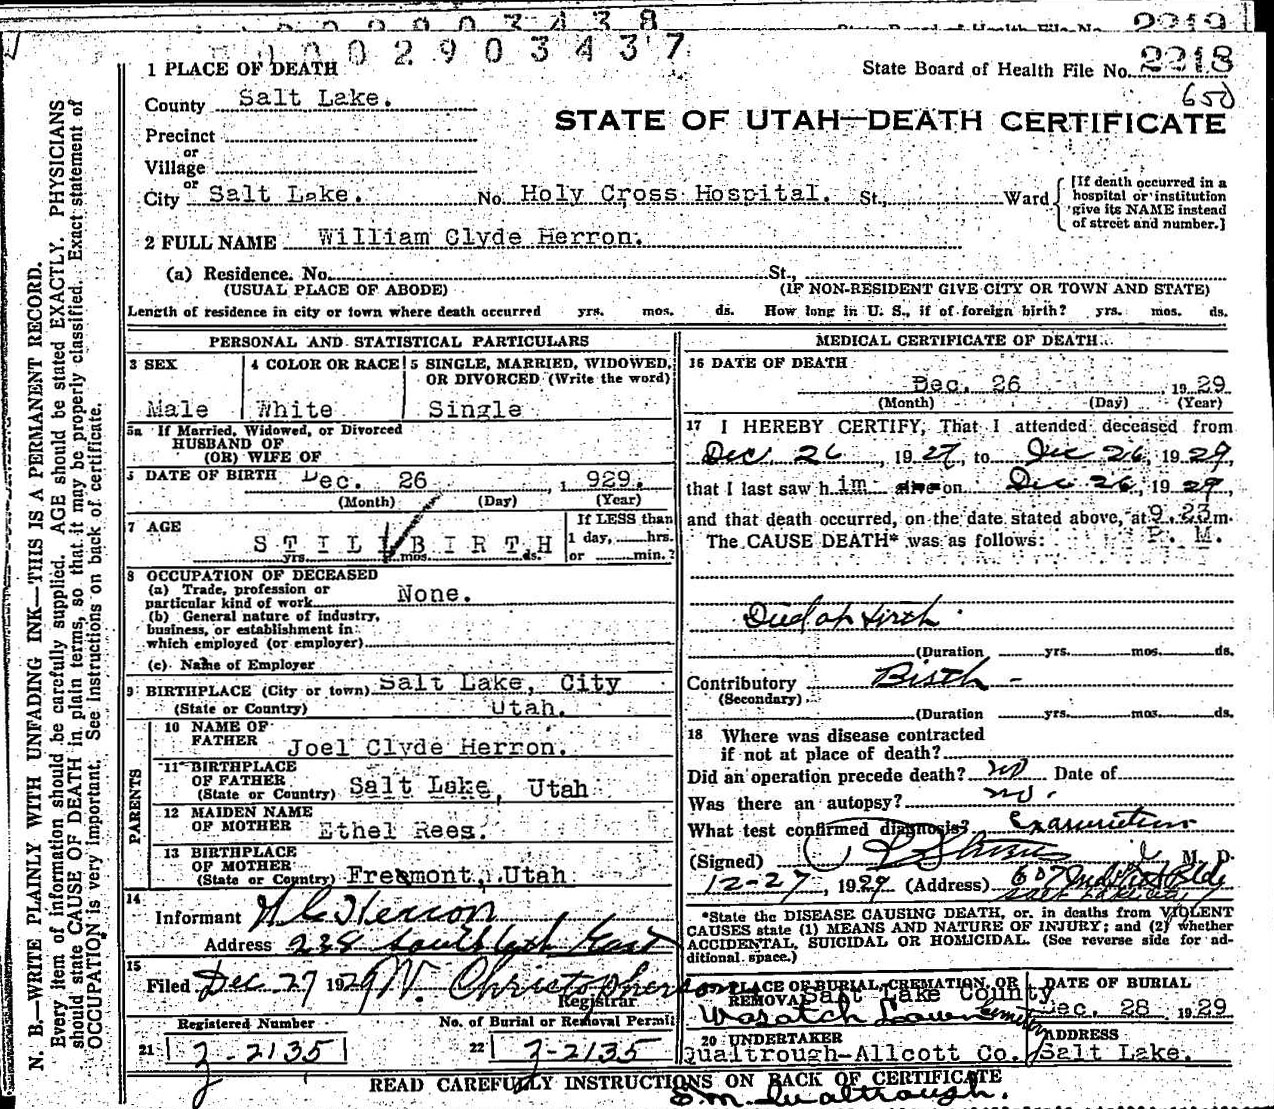 2219
0002903437
State Board of Health File No. 2218
650
1 PLACE OF DEATH
County Salt Lake.
STATE OF UTAH—DEATH CERTIFICATE
Precinct
or
Village
or
City Salt Lake. No. Holy Cross Hospital. St., Ward
[If death occurred in a
hospital or institution
give its NAME instead
of street and number.]
2 FULL NAME William Clyde Herron.
(a) Residence. No. St.,
(USUAL PLACE OF ABODE) (IF NON-RESIDENT GIVE CITY OR TOWN AND STATE)
Length of residence in city or town where death occurred yrs. mos. ds. How long in U. S., if of foreign birth? yrs. mos. ds.
PERSONAL AND STATISTICAL PARTICULARS
3 SEX
Male
4 COLOR OR RACE
White
5 SINGLE, MARRIED, WIDOWED,
OR DIVORCED (Write the word)
Single
5a If Married, Widowed, or Divorced
HUSBAND OF
(OR) WIFE OF
DATE OF BIRTH Dec. 26, 1929.
(Month) (Day) (Year)
7 AGE
STILLBIRTH
yrs. mos. ds.
If LESS than
1 day, hrs.
or min.?
8 OCCUPATION OF DECEASED
(a) Trade, profession or
particular kind of work None.
(b) General nature of industry,
business, or establishment in
which employed (or employer)
(c) Name of Employer
9 BIRTHPLACE (City or town) Salt Lake, City
(State or Country) Utah.
PARENTS
10 NAME OF
FATHER Joel Clyde Herron.
11 BIRTHPLACE
OF FATHER
(State or Country) Salt Lake, Utah
12 MAIDEN NAME
OF MOTHER Ethel Rees.
13 BIRTHPLACE
OF MOTHER
(State or Country) Freemont, Utah
14
Informant Herron
Address 238 South East
15
Filed Dec 27 1929 Christopherson
Registrar
Registered Number No. of Burial or Removal Permit
21 3-2135 22 3-2135
MEDICAL CERTIFICATE OF DEATH
16 DATE OF DEATH
Dec. 26 1929
(Month) (Day) (Year)
17 I HEREBY CERTIFY, That I attended deceased from
Dec 26, 1929, to Dec 26, 1929,
that I last saw him alive on Dec 26, 1929,
and that death occurred, on the date stated above, at 9.23 m.
P. M.
The CAUSE DEATH* was as follows:
Died at birth
(Duration yrs. mos. ds.
Contributory Birth -
(Secondary)
(Duration yrs. mos. ds.
18 Where was disease contracted
if not at place of death?
Did an operation precede death? no Date of
Was there an autopsy? no.
What test confirmed diagnosis? Examination
(Signed) M. D.
12-27, 1929 (Address) 607 Bldg
Salt Lake City
*State the DISEASE CAUSING DEATH, or, in deaths from VIOLENT
CAUSES state (1) MEANS AND NATURE OF INJURY; and (2) whether
ACCIDENTAL, SUICIDAL OR HOMICIDAL. (See reverse side for ad-
ditional space.)
PLACE OF BURIAL, CREMATION, OR
REMOVAL Salt Lake County
Wasatch Lawn Cemetery
DATE OF BURIAL
Dec. 28 1929
20 UNDERTAKER
Qualtrough-Allcott Co.
ADDRESS
Salt Lake.
READ CAREFULLY INSTRUCTIONS ON BACK OF CERTIFICATE
S.M. Qualtrough.
N. B.—WRITE PLAINLY WITH UNFADING INK—THIS IS A PERMANENT RECORD.
Every item of information should be carefully supplied. AGE should be stated EXACTLY. PHYSICIANS
should state CAUSE OF DEATH in plain terms, so that it may be properly classified. Exact statement of
OCCUPATION is very important. See instructions on back of certificate.